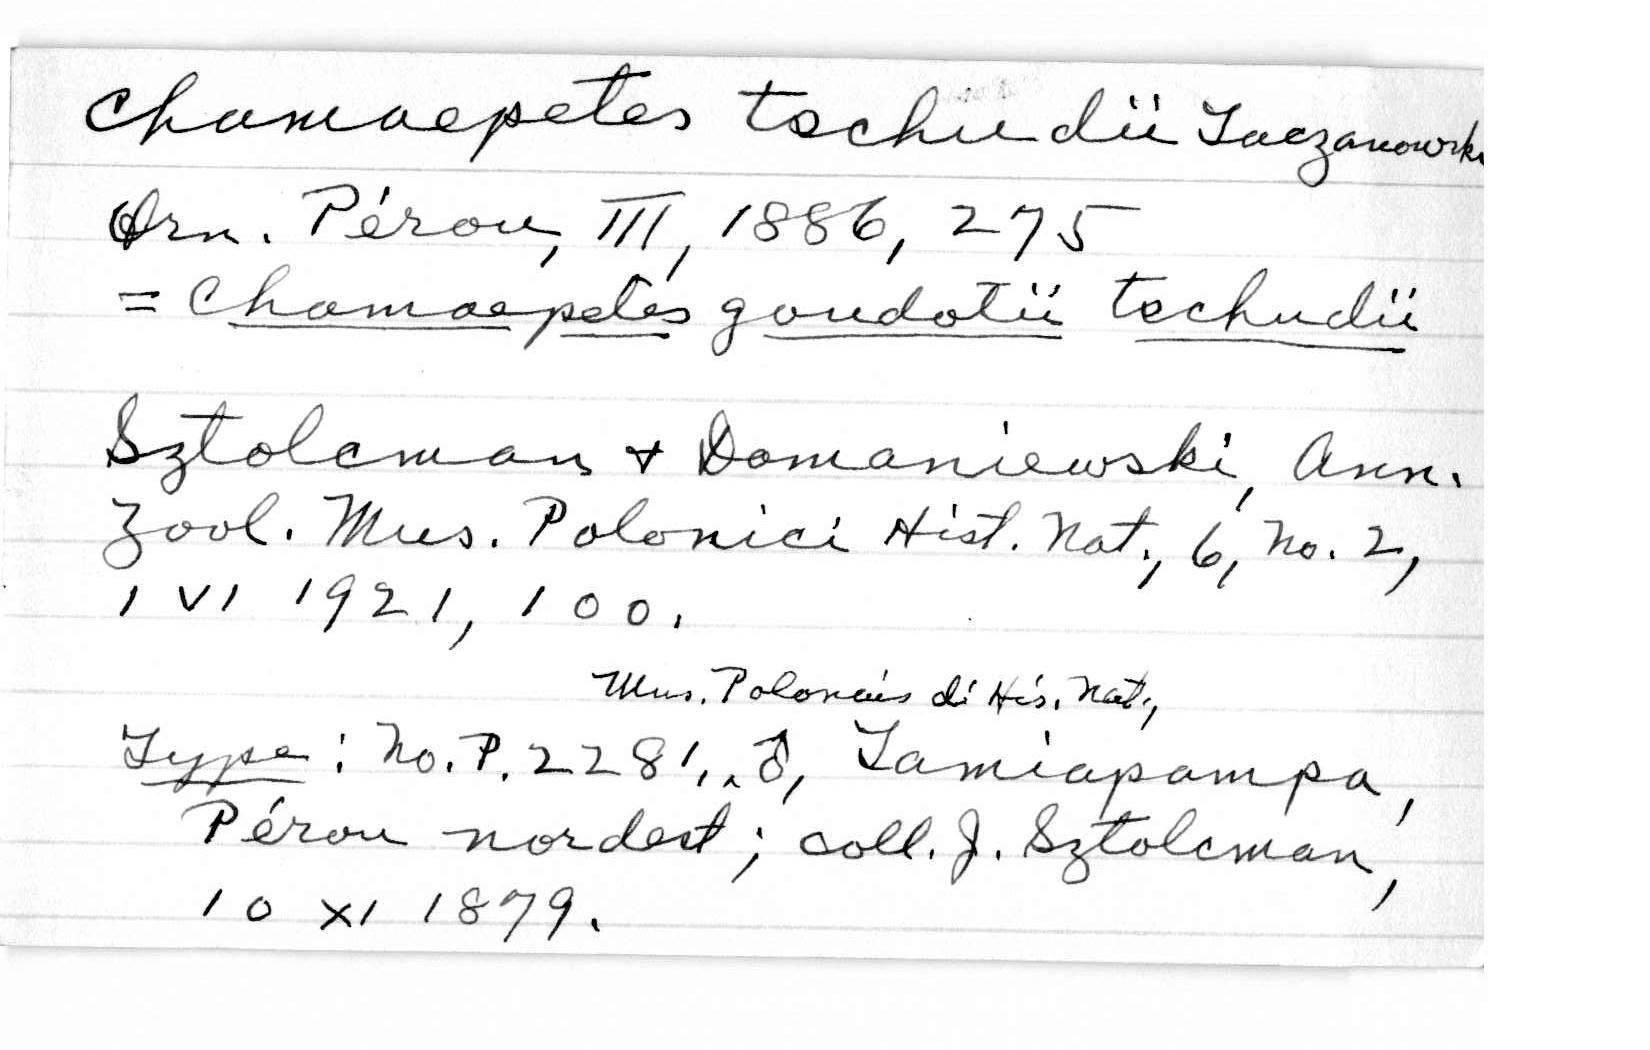 Chamaepetes tschudii Taczanowski
Orn. Pérou, III, 1886, 275
= Chamaepetes goudotii tschudii
Sztolcman & Domaniewski, Ann.
Zool. Mus. Polonici Hist. Nat., 6, No. 2,
1 VI 1921, 100.
Mus. Polonais di His. Nat.,
Type: No. P. 2281,‸ ♂, Tamiapampa,
Pérou nordest; coll. J. Sztolcman,
10 XI 1879.